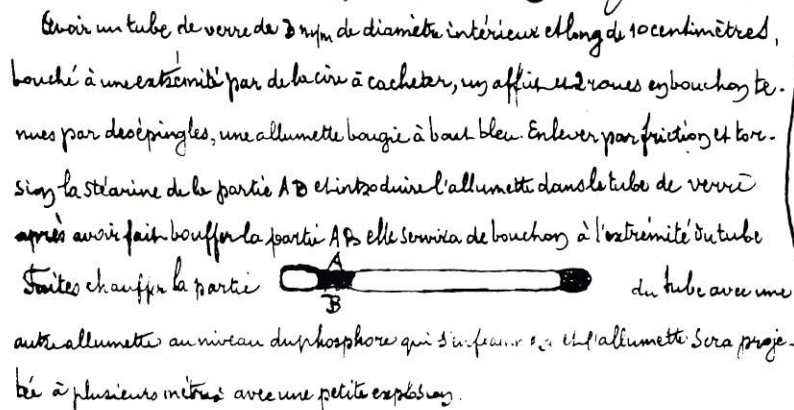 Avoir un tube de verre de 3 m/m de diamètre intérieur et long de 10 centimètres,
bouché à une extrémité par de la cire à cacheter, un affut et 2 roues en bouchon te-
nues par des épingles, une allumette bougie à bout bleu. Enlever par friction et tor-
sion la stéarine de la partie AB et introduire l'allumette dans le tube de verre
après avoir fait bouffer la partie AB elle servira de bouchon à l'extrémité du tube
Faites chauffer la partie A B du tube avec une
autre allumette au niveau du phosphore qui et l'allumette sera proje-
tée à plusieurs mètres avec une petite explosion.